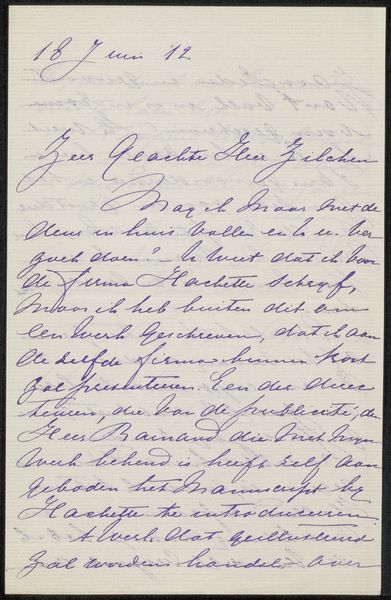 18 Juni 12
Zeer Geachte Heer Zilcken
Mag ik maar met de
deur in huis vallen en u ver
zoek doen? – U weet dat ik voor
de firma Hachette schryf,
maar ik heb buiten dit om
een werk geschreven, dat ik aan
de zelfde firma binnen kort
zal presenteeren. Een der direc
teuren, die van de publicité, de
Heer Rainaud die met myn
werk bekend is heeft zelf aan
geboden het manuscript by
Hachette te introduceeren.
't Werk dat geïllustreerd
zal worden handelt over